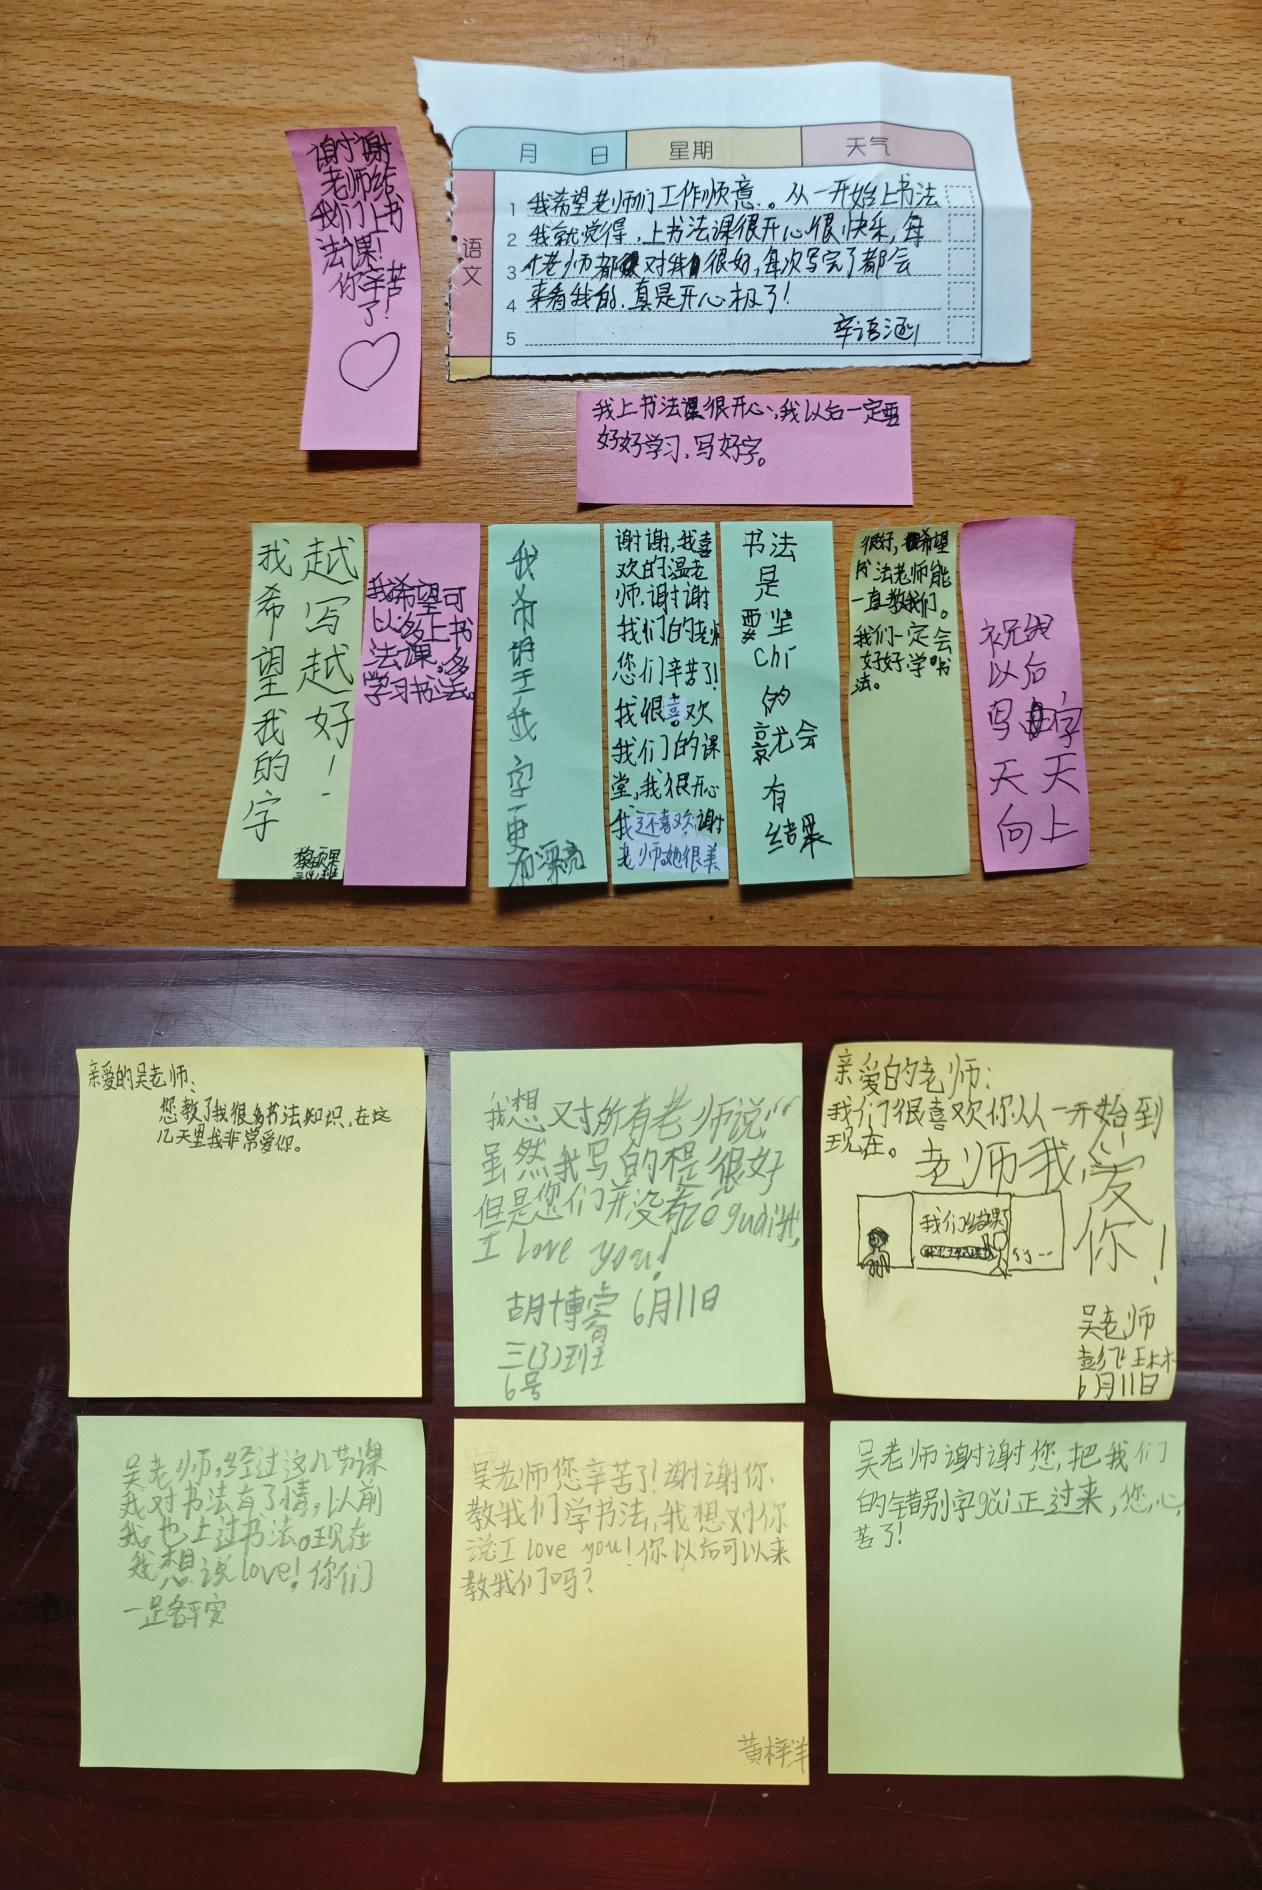 谢谢
老师给
我们上书
法课!
你辛苦
了!
月 日 星期 天气
语文
1 我希望老师们工作顺意。从一开始上书法
2 我就觉得,上书法课很开心很快乐,每
3 个老师都对我很好,每次写完了都会
4 来看我的,真是开心极了!
5 辛语涵
我上书法课很开心,我以后一定要
好好学习,写好字。
我希望我的字
越写越好!
我希望可
以多上书
法课,多
学习书法。
我希望我字更
漂亮
谢谢,我喜
欢的温老
师,谢谢
我们的老师
您们辛苦了!
我很喜欢
我们的课
堂,我很开心
我还喜欢谢
老师她很美
书法
是
要坚
chí
的
就会
有
结果
很好,希望
书法老师能
一直教我们。
我们一定会
好好学习书
法。
祝我
以后
写字
天天
向上
亲爱的吴老师:
您教了我很多书法知识,在这
几天里我非常爱你。
我想对所有老师说:“
虽然我写的不是很好
但是您们并没有zé guài我,
I love you!
胡博
6月11日
三(3)班
6号
亲爱的老师:
我们很喜欢你从一开始到
现在。
老师我爱
你!
我们结课了
吴老师
6月11日
吴老师,经过这几节课
我对书法有了情,以前
我也上过书法。现在
我想说love!你们
一定
吴老师您辛苦了!谢谢你
教我们学书法,我想对你
说I love you!你以后可以来
教我们吗?
黄梓洋
吴老师谢谢您,把我们
的错别字gǎi正过来,您心
苦了!